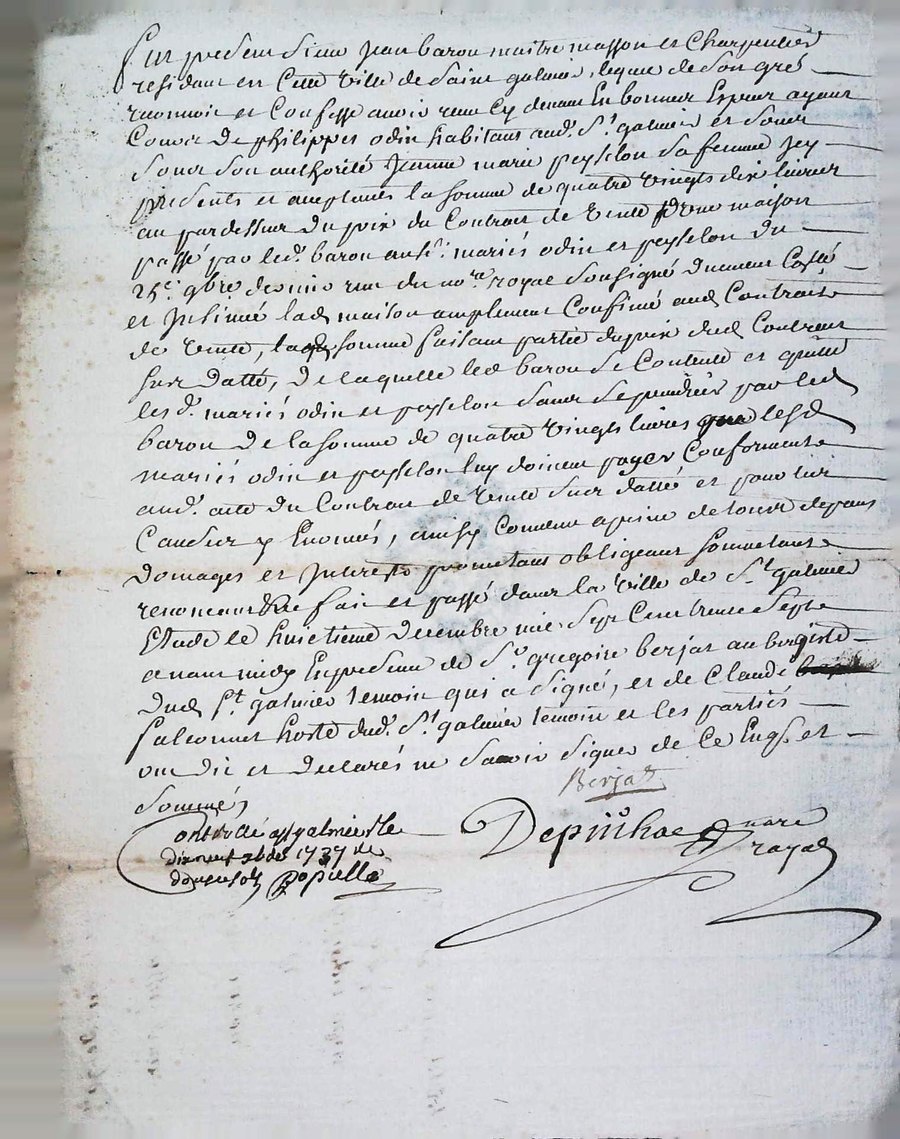 fut present sieur jean baron maitre masson et Charpentier
residant en Cette ville de Saint galmier, lequel de son gré
reconnoit et Confesse avoir receu Cy devant En bonnes Especes ayant
Cours de philippes odin habitant aud. St. galmier et sous
son authorité jeanne marie peysselon sa femme jcy
presents et acceptants la somme de quatre vingts dix livres
au pardessus du prix du Contract de vente d'une maison
passé par led. baron auxd. mariés odin et peysselon du
25e. 9bre. dernier receu du nore. royal soussigné
et jnsinué lad. maison amplement Confinée aud Contract
de vente, laqlle somme faisant partie du prix dud Contract
sus datté, de laquelle led baron se Contente et quitte
lesd. mariés odin et peysselon sans préjudice par led
baron de la somme de quatre vingts livres que lesd
mariés odin et peysselon luy doivent payer Conformement
aud. acte du Contract de vente sus datté et pour les
Causes y Enoncés, ainsy Convenu a peine de tous depans
Domages et jnterests promettans obligeant soumettant
renonceant &re fait et passé dans la ville de St. galmier
Etude le huitieme decembre mil sept Cent trente sept
avant midy En presence de Sr. gregoire berjat aubergiste
dud St. galmier temoin qui a signé, et de Claude
falconnet hoste dud. St. galmier temoin et les parties
ont dit et declarés ne savoir signer de Ce Enqs. et
sommés
Berjat
Controllé a St galmier le
dixneuf xbre 1737 Re
douze sols populle
Depiuhac nore
royal